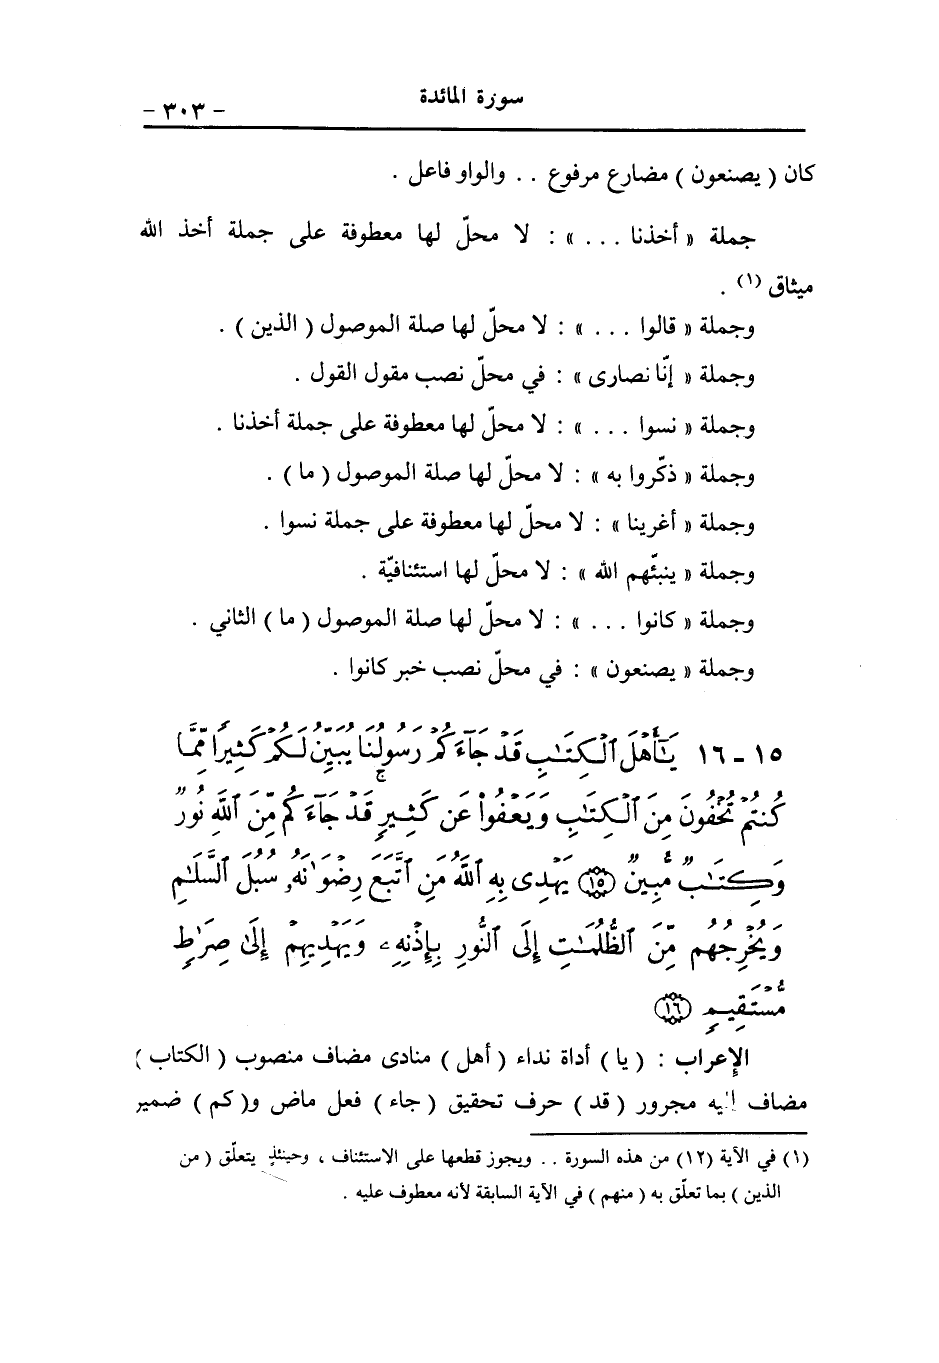 سورة المائدة
- ٣٠٣ -
كان ( يصنعون ) مضارع مرفوع . . والواو فاعل .
جملة « أخذنا . . . » : لا محلّ لها معطوفة على جملة أخذ الله
ميثاق (١) .
وجملة « قالوا . . . » : لا محلّ لها صلة الموصول ( الذين ) .
وجملة « إنّا نصارى » : في محلّ نصب مقول القول .
وجملة « نسوا . . . » : لا محلّ لها معطوفة على جملة أخذنا .
وجملة « ذكّروا به » : لا محلّ لها صلة الموصول ( ما ) .
وجملة « أغرينا » : لا محلّ لها معطوفة على جملة نسوا .
وجملة « ينبّئهم الله » : لا محلّ لها استئنافيّة .
وجملة « كانوا . . . » : لا محلّ لها صلة الموصول ( ما ) الثاني .
وجملة « يصنعون » : في محلّ نصب خبر كانوا .
١٥ - ١٦ يَٰٓأَهْلَ ٱلْكِتَٰبِ قَدْ جَآءَكُمْ رَسُولُنَا يُبَيِّنُ لَكُمْ كَثِيرًا مِّمَّا
كُنتُمْ تُخْفُونَ مِنَ ٱلْكِتَٰبِ وَيَعْفُوا۟ عَن كَثِيرٍ ۚ قَدْ جَآءَكُم مِّنَ ٱللَّهِ نُورٌ
وَكِتَٰبٌ مُّبِينٌ ﴿١٥﴾ يَهْدِى بِهِ ٱللَّهُ مَنِ ٱتَّبَعَ رِضْوَٰنَهُۥ سُبُلَ ٱلسَّلَٰمِ
وَيُخْرِجُهُم مِّنَ ٱلظُّلُمَٰتِ إِلَى ٱلنُّورِ بِإِذْنِهِۦ وَيَهْدِيهِمْ إِلَىٰ صِرَٰطٍ
مُّسْتَقِيمٍ ﴿١٦﴾
الإعراب : ( يا ) أداة نداء ( أهل ) منادى مضاف منصوب ( الكتاب )
مضاف إليه مجرور ( قد ) حرف تحقيق ( جاء ) فعل ماض و( كم ) ضمير
(١) في الآية (١٢) من هذه السورة . . ويجوز قطعها على الاستئناف ، وحينئذٍ يتعلّق ( من
الذين ) بما تعلّق به ( منهم ) في الآية السابقة لأنه معطوف عليه .